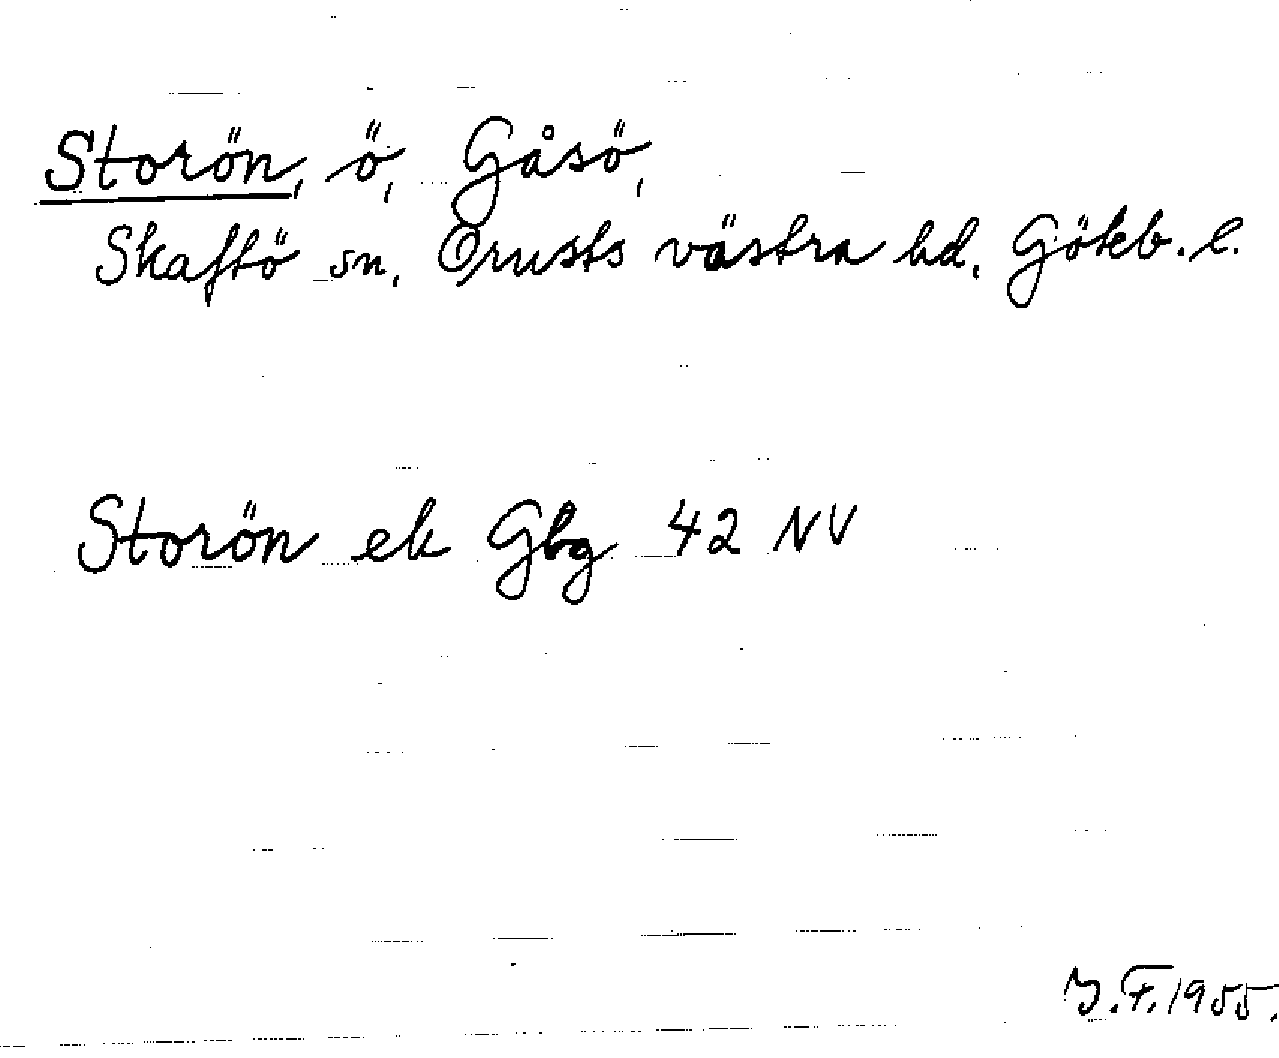 Storön, ö, Gåsö,
Skaftö sn, Orusts västra hd, Göteb. l.
Storön ek Gbg 42 NV
J.F. 1955.